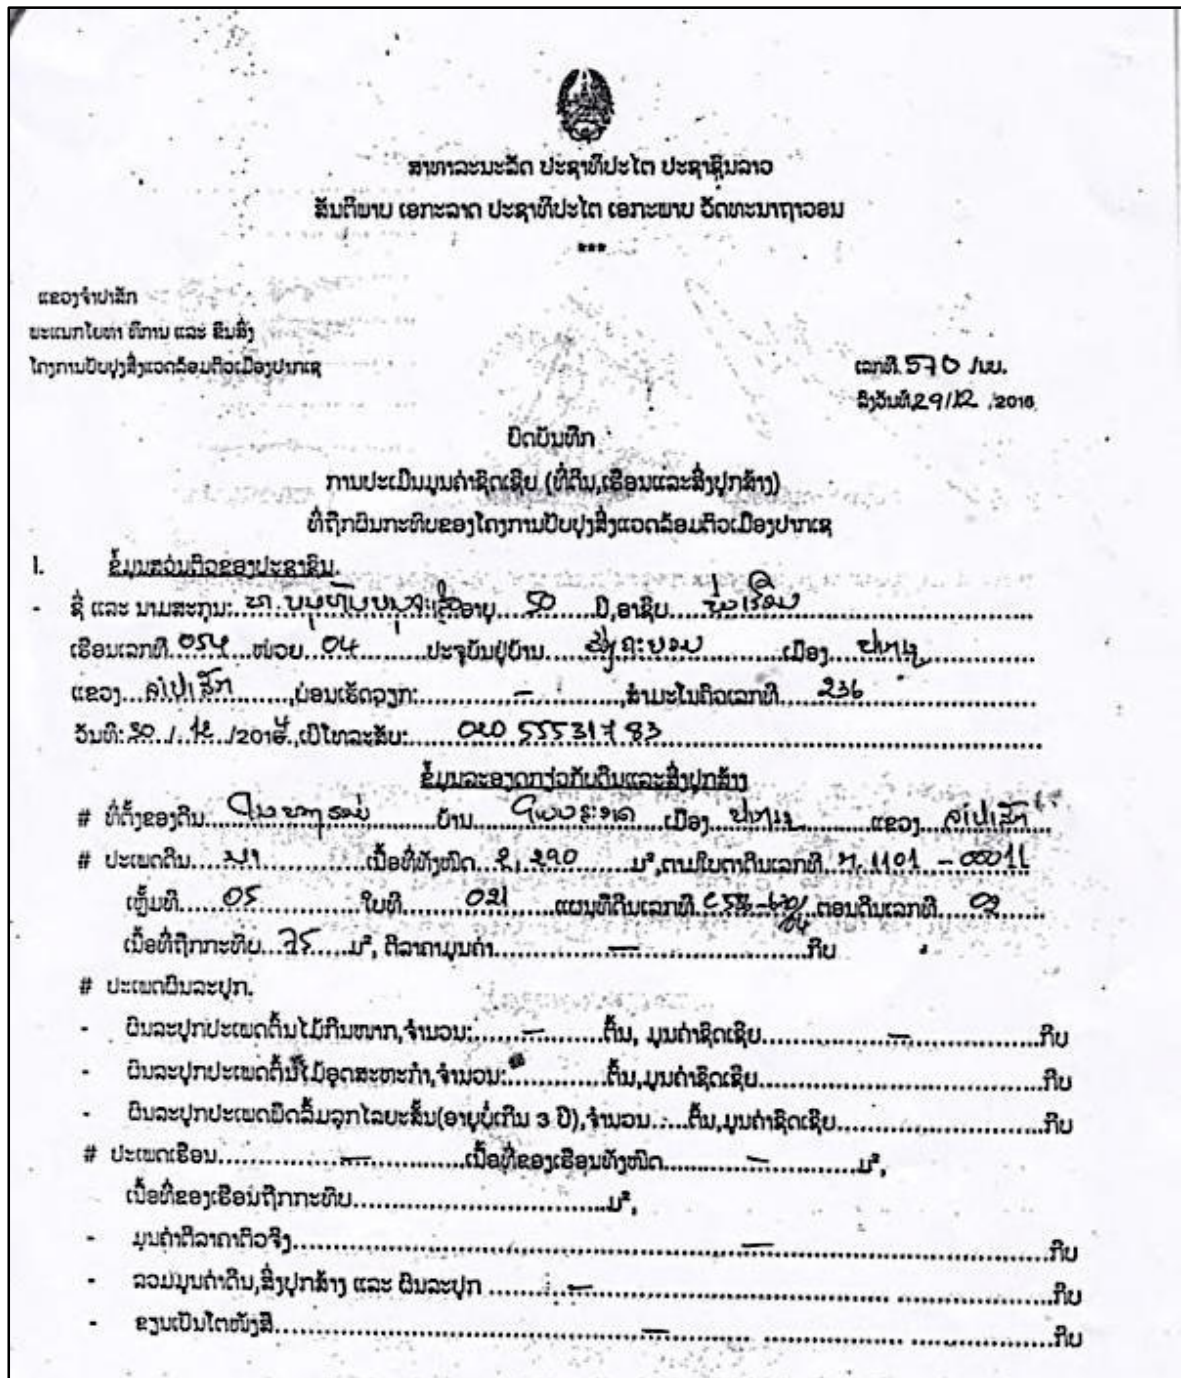 ສາທາລະນະລັດ ປະຊາທິປະໄຕ ປະຊາຊົນລາວ
ສັນຕິພາບ ເອກະລາດ ປະຊາທິປະໄຕ ເອກະພາບ ວັດທະນາຖາວອນ
***
ແຂວງຈຳປາສັກ
ພະແນກໂຍທາ ທິການ ແລະ ຂົນສົ່ງ
ໂຄງການປັບປຸງສິ່ງແວດລ້ອມຕົວເມືອງປາກເຊ
ເລກທີ 570 /ນບ.
ລົງວັນທີ 29/12 /2016
ບົດບັນທຶກ
ການປະເມີນມູນຄ່າຊົດເຊີຍ (ທີ່ດິນ,ເຮືອນແລະສິ່ງປຸກສ້າງ)
ທີ່ຖືກຜົນກະທົບຂອງໂຄງການປັບປຸງສິ່ງແວດລ້ອມຕົວເມືອງປາກເຊ
I. ຂໍ້ມູນສ່ວນຕົວຂອງປະຊາຊົນ.
- ຊື່ ແລະ ນາມສະກຸນ: ອາຍຸ 50 ປີ,ອາຊີບ
ເຮືອນເລກທີ 054 ໜ່ວຍ 04 ປະຈຸບັນຢູ່ບ້ານ ເມືອງ
ແຂວງ ຈຳປາສັກ ,ບ່ອນເຮັດວຽກ: — ,ສຳມະໂນຄົວເລກທີ 236
ວັນທີ: /12 /201 ,ເບີໂທລະສັບ: 020 55531783
ຂໍ້ມູນລະອຽດກ່ຽວກັບດິນແລະສິ່ງປຸກສ້າງ
# ທີ່ຕັ້ງຂອງດິນ: ບ້ານ ເມືອງ ແຂວງ ຈຳປາສັກ
# ປະເພດດິນ ເນື້ອທີ່ທັງໝົດ ມ²,ຕາມໃບຕາດິນເລກທີ 1101 - 00011
ເຫຼັ້ມທີ 05 ໃບທີ 021 ແຜນທີ່ດິນເລກທີ ຕອນດິນເລກທີ 02
ເນື້ອທີ່ຖືກກະທົບ 35 ມ², ຕີລາຄາມູນຄ່າ — ກີບ
# ປະເພດຜົນລະປຸກ.
- ຜົນລະປຸກປະເພດຕົ້ນໄມ້ກິນໝາກ,ຈຳນວນ: — ຕົ້ນ, ມູນຄ່າຊົດເຊີຍ — ກີບ
- ຜົນລະປຸກປະເພດຕົ້ນໄມ້ອຸດສະຫະກຳ,ຈຳນວນ: ຕົ້ນ,ມູນຄ່າຊົດເຊີຍ ກີບ
- ຜົນລະປຸກປະເພດພືດລົ້ມລຸກໄລຍະສັ້ນ(ອາຍຸບໍ່ເກີນ 3 ປີ),ຈຳນວນ ຕົ້ນ,ມູນຄ່າຊົດເຊີຍ ກີບ
# ປະເພດເຮືອນ — ເນື້ອທີ່ຂອງເຮືອນທັງໝົດ — ມ²,
ເນື້ອທີ່ຂອງເຮືອນຖືກກະທົບ ມ²,
- ມູນຄ່າຕີລາຄາຕົວຈິງ — ກີບ
- ລວມມູນຄ່າດິນ,ສິ່ງປຸກສ້າງ ແລະ ຜົນລະປຸກ — ກີບ
- ຂຽນເປັນໂຕໜັງສື — ກີບ